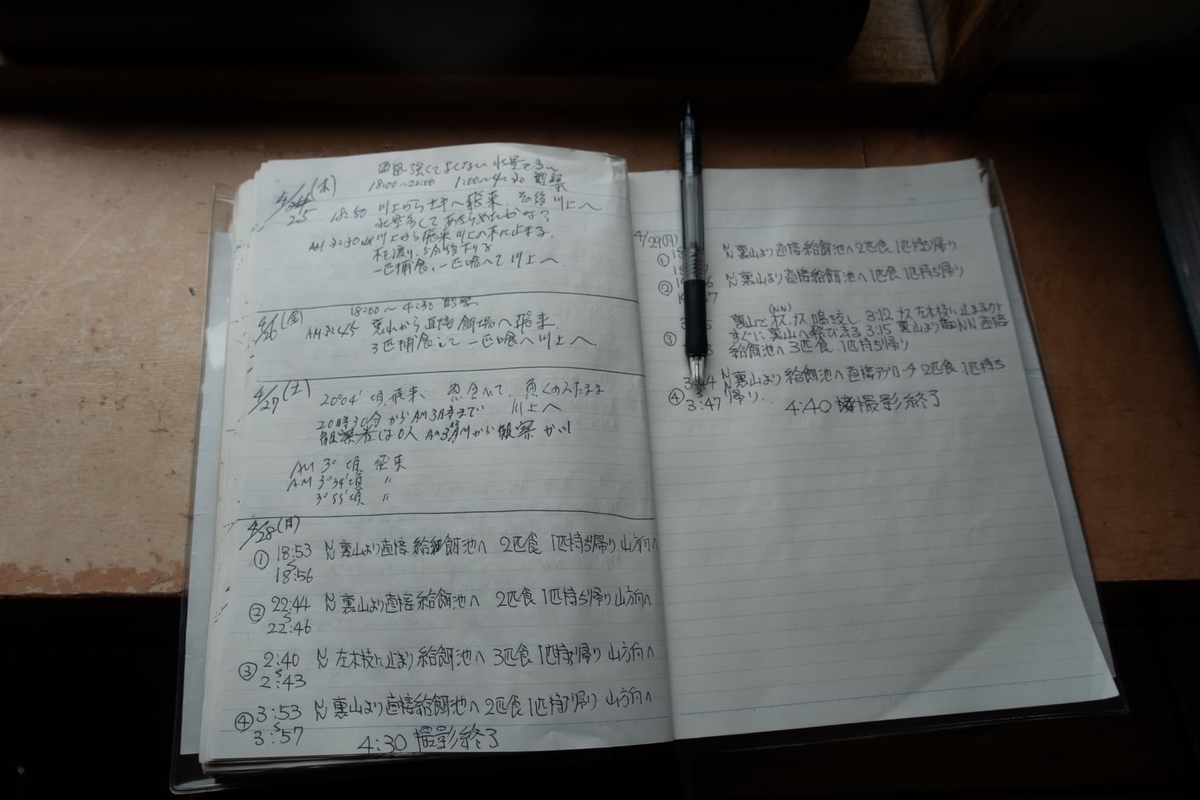 強くてよくない 水量
18:00~20:00 1:00~4:30 観察
4/25 (木)
18:50 川上から 飛来 その後 川上へ
水量多くてあきらめたかな?
川上から飛来 川上の木に止まる。
木を渡り、5分後下りる
一匹捕食、一匹喰へて川上へ
4/26 (金) 18:00~4:30 観察
AM 3:45 裏山から直接 餌場へ飛来
3匹捕食して 一匹喰へ川上へ
4/27 (土) 20°04'頃飛来、
川上へ
20時30分から
観察者は0人
AM 3°頃 飛来
AM 3°34'頃 〃
3°55'頃 〃
4/28 (月)
① 18:53 N 裏山より直接給餌池へ 2匹食 1匹持ち帰り 山方向へ
18:56
② 22:44 N 裏山より直接給餌池へ 2匹食 1匹持ち帰り 山方向へ
22:46
③ 2:40 N 左木枝に止まり給餌池へ 3匹食 1匹持ち帰り 山方向へ
2:43
④ 3:53 N 裏山より直接給餌池へ 2匹食 1匹持ち帰り 山方向へ
3:57
4:30 撮影終了
4/29(月)
① N 裏山より直接給餌池へ 2匹食 1匹持ち帰り
② N 裏山より直接給餌池へ 1匹食 1匹持ち帰り
(NN)
裏山でオス、メス 鳴交し 3:12 メス左木枝に止まるが
③ すぐに裏山へ飛び去る 3:15 裏山より NN 直接
給餌池へ 3匹食 1匹持ち帰り
N 裏山より 給餌池へ直接アプローチ 2匹食 1匹持ち
④ 3:47 帰り..
4:40 撮影終了